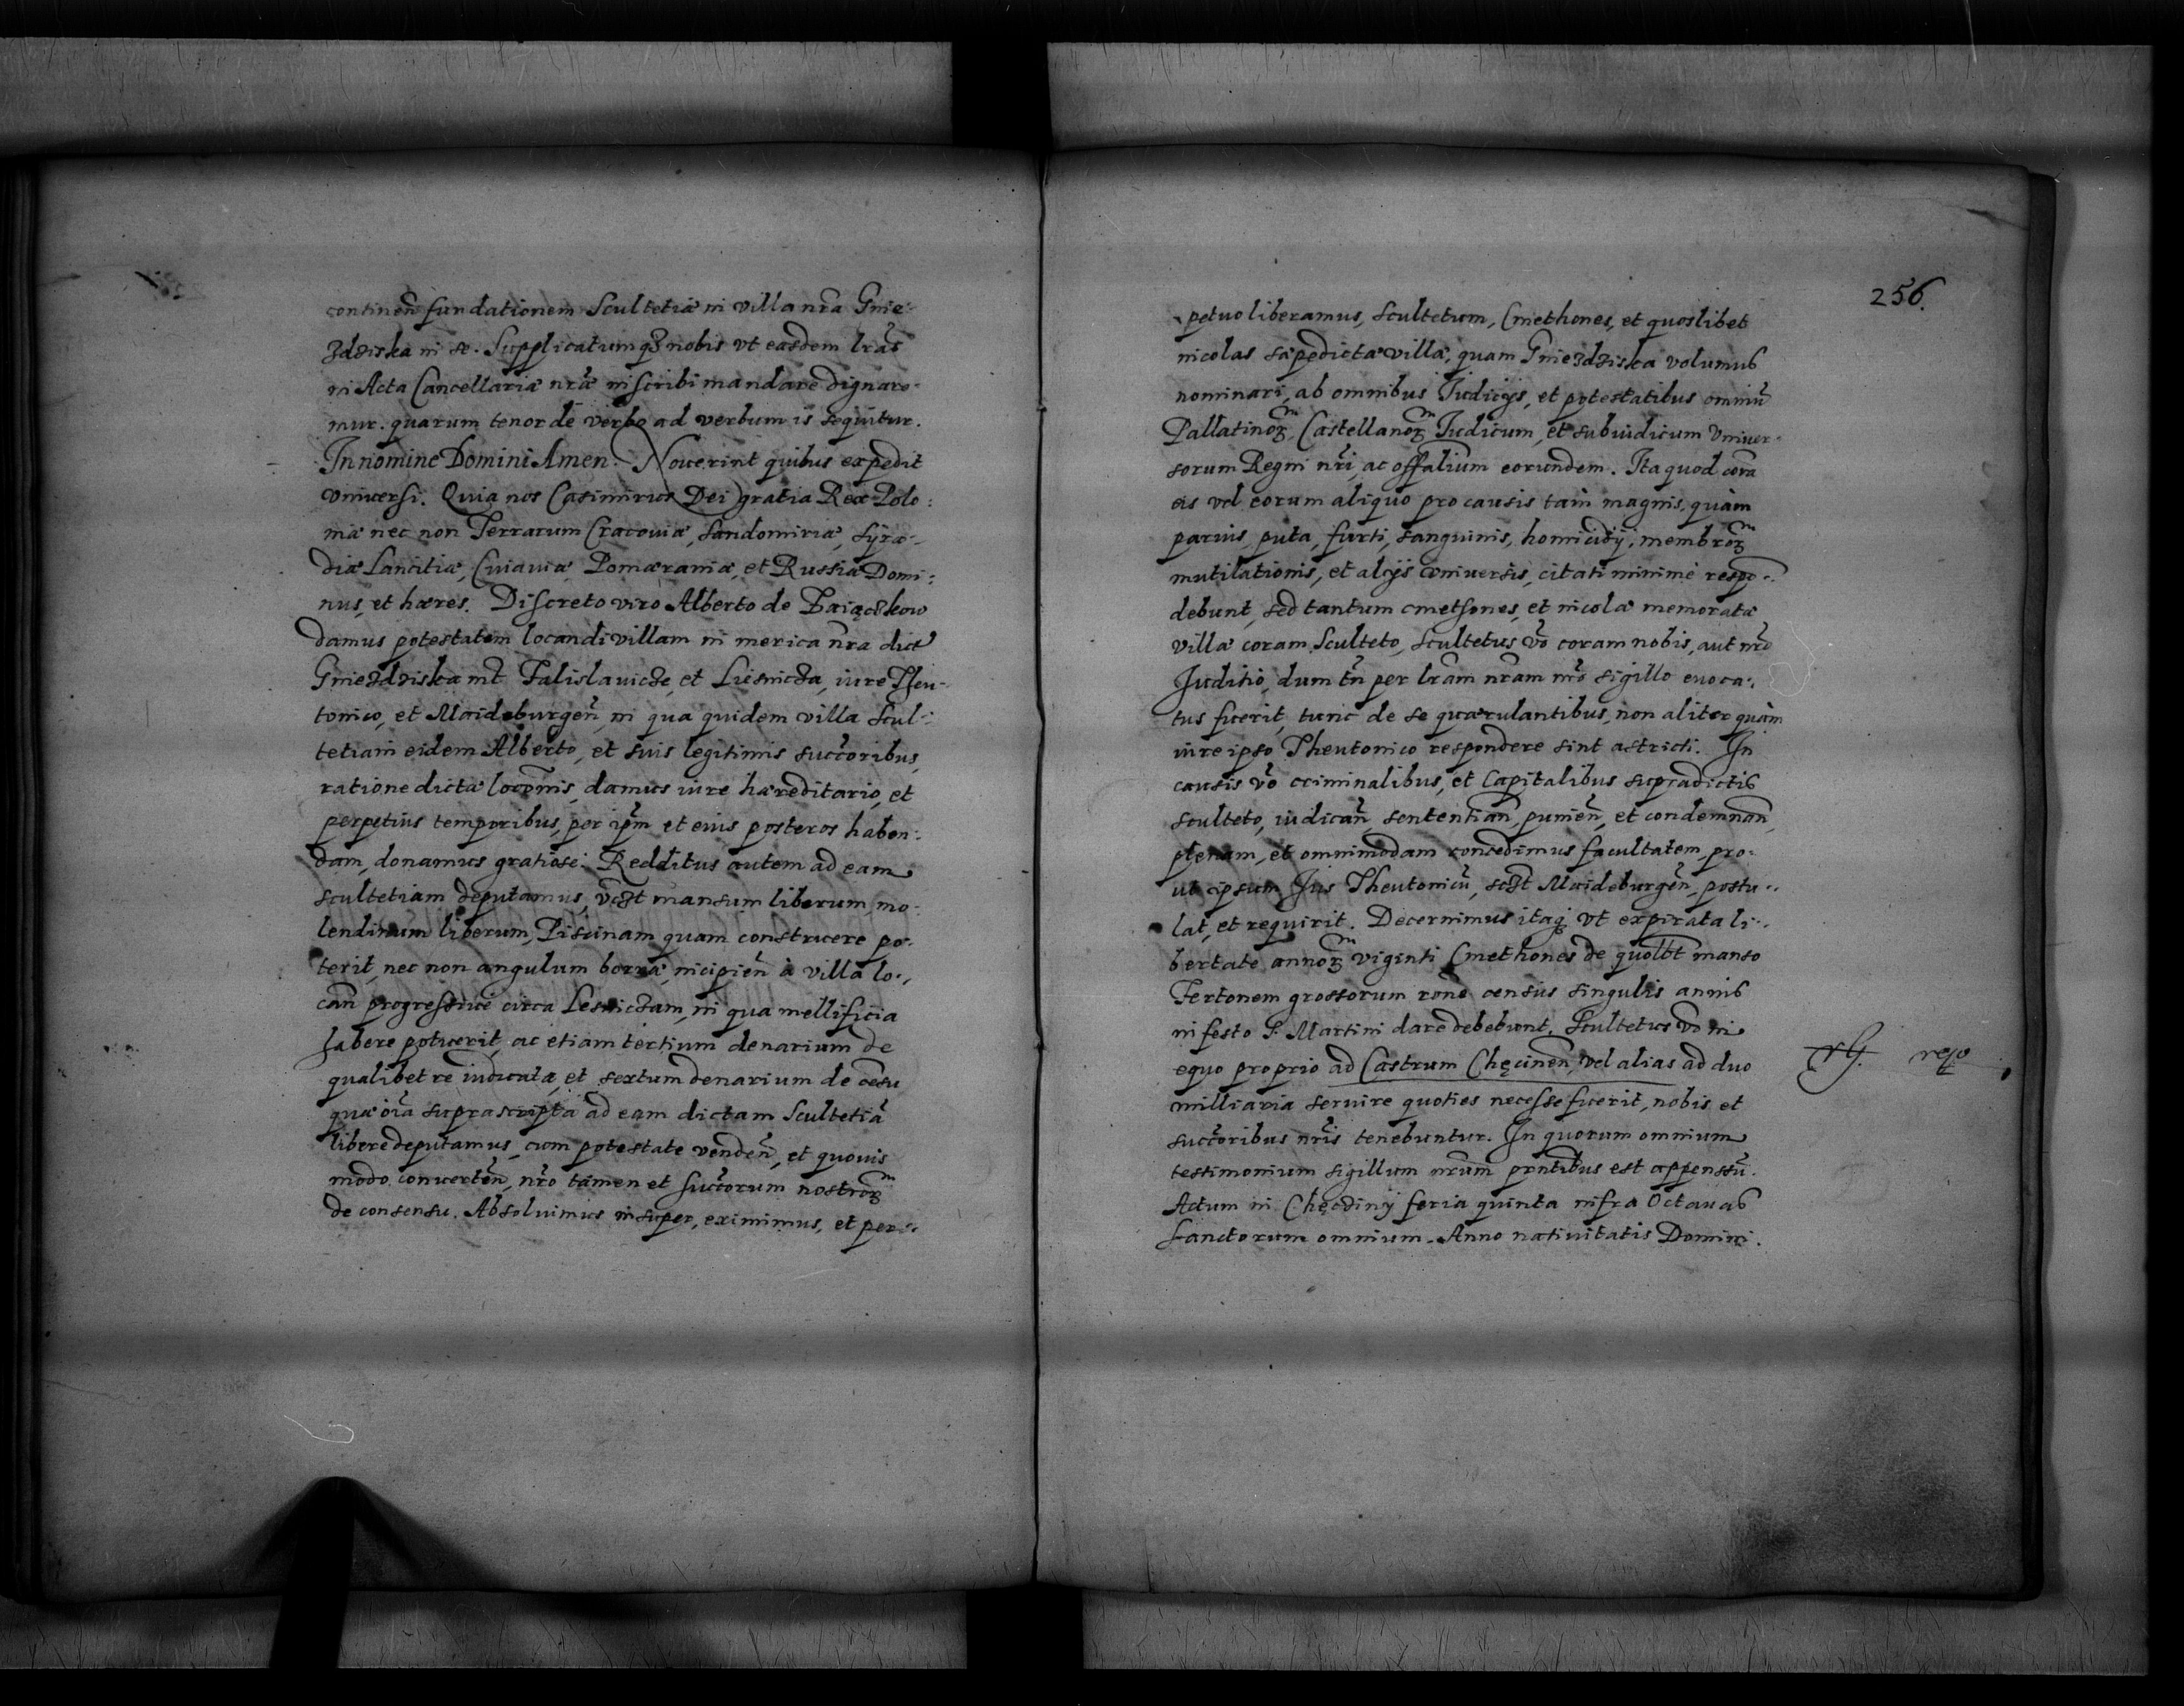 continen̄ fundationem Scultetiæ in villa nr̄a Gnie-
zdziska in se. Supplicatumqȝ nobis vt easdem lr̄as
in Acta Cancellariæ nr̄æ inscribi mandare dignare-
mur. quarum tenor de verbo ad verbum is sequitur.
In nomine Domini Amen. Nouerint quibus expedit
vniuersi. Quia nos Casimirus Dei gratia Rex Polo:
niæ nec non Terrarum Cracouiæ, Sandomiriæ, Syra-
diæ Lancitiæ, Cuiauiæ Pomæraniæ, et Russiæ Domi:
nus, et hæres. Discreto viro Alberto de
damus potestatem locandi villam in merica nr̄a dict
Gniezdziska int̄ Falislauicze, et Liesnicza, iure Theu-
tonico, et Maideburgen̄, in qua quidem villa Scul-
tetiam eidem Alberto, et suis legitimis succ̄oribus,
ratione dictæ loco͠nis, damus iure hæreditario, et
perpetuis temporibus, per ip̄m et eius posteros haben:
dam, donamus gratiose. Redditus autem ad eam
scultetiam deputamus, vꝫt mansum liberum, mo-
lendinum liberum, Piscinam quam construere po-
terit, nec non angulum borræ, incipien̄ à villa lo-
can̄ progressiuè circa Lesniczam, in qua mellificia
habere potuerit, ac etiam tertium denarium de
qualibet re iudicata, et sextum denarium de cēsu
quæ oīa suprascripta ad eam dictam Scultetiā
libere deputamus, cum potestate venden̄, et quouis
modo conuerten̄, nr̄o tamen et succ̄orum nostrorꝫᵐ
de consensu. Absoluimus insuper, eximimus, et per-
256.
petuo liberamus, scultetum, Cmethones, et quoslibet
incolas sæpedictæ villæ, quam Gniezdziska volumus
nominari, ab omnibus Iudicijs, et potestatibus omniū
Pallatinorꝫᵐ Castellanorꝫᵐ Iudicum, et subiudicum vniuer-
sorum Regni nr̄i, ac offālium eorundem. Ita quod corā
eis vel eorum aliquo pro causis tam magnis, quàm
paruis, puta, furti, sanguinis, homicidij, membrorꝫᵐ
mutilationis, et alijs vniuersis, citati minimè respō-
debunt, sed tantum cmethones, et incolæ memoratæ
villæ coram Sculteto, Scultetus vō coram nobis, aut nr̄o
Juditio, dum tn̄ per lr̄am nr̄am nr̄o sigillo euoca-
tus fuerit, tunc de se quærulantibus, non aliter quàm
iure ipso Theutonico respondere sint astricti. In
causis vō criminalibus, et Capitalibus supradictis
sculteto, iudican̄, sententian̄, punien̄, et condemnan̄,
plenam, et omnimodam concedimus facultatem, pro-
ut ipsum Jus Theutonicū, sc̄ꝫt Maideburgen̄, postu-
lat, et requirit. Decernimus itaqȝ vt expirata li-
bertate annorꝫᵐ viginti Cmethones de quol̄bt manso
Fertonem grossorum rōne census singulis annis
in festo S. Martini dare debebunt, Scultetus vō in
equo proprio ad Castrum Chęcinen̄ vel alias ad duo
milliaria seruire quoties necesse fuerit, nobis et
succ̄oribus nr̄is tenebuntur. In quorum omnium
testimonium sigillum nrūm pr̄ntibus est appensū.
Actum in Chęcziny feria quinta infra Octauas
Sanctorum omnium. Anno natiuitatis Domini.